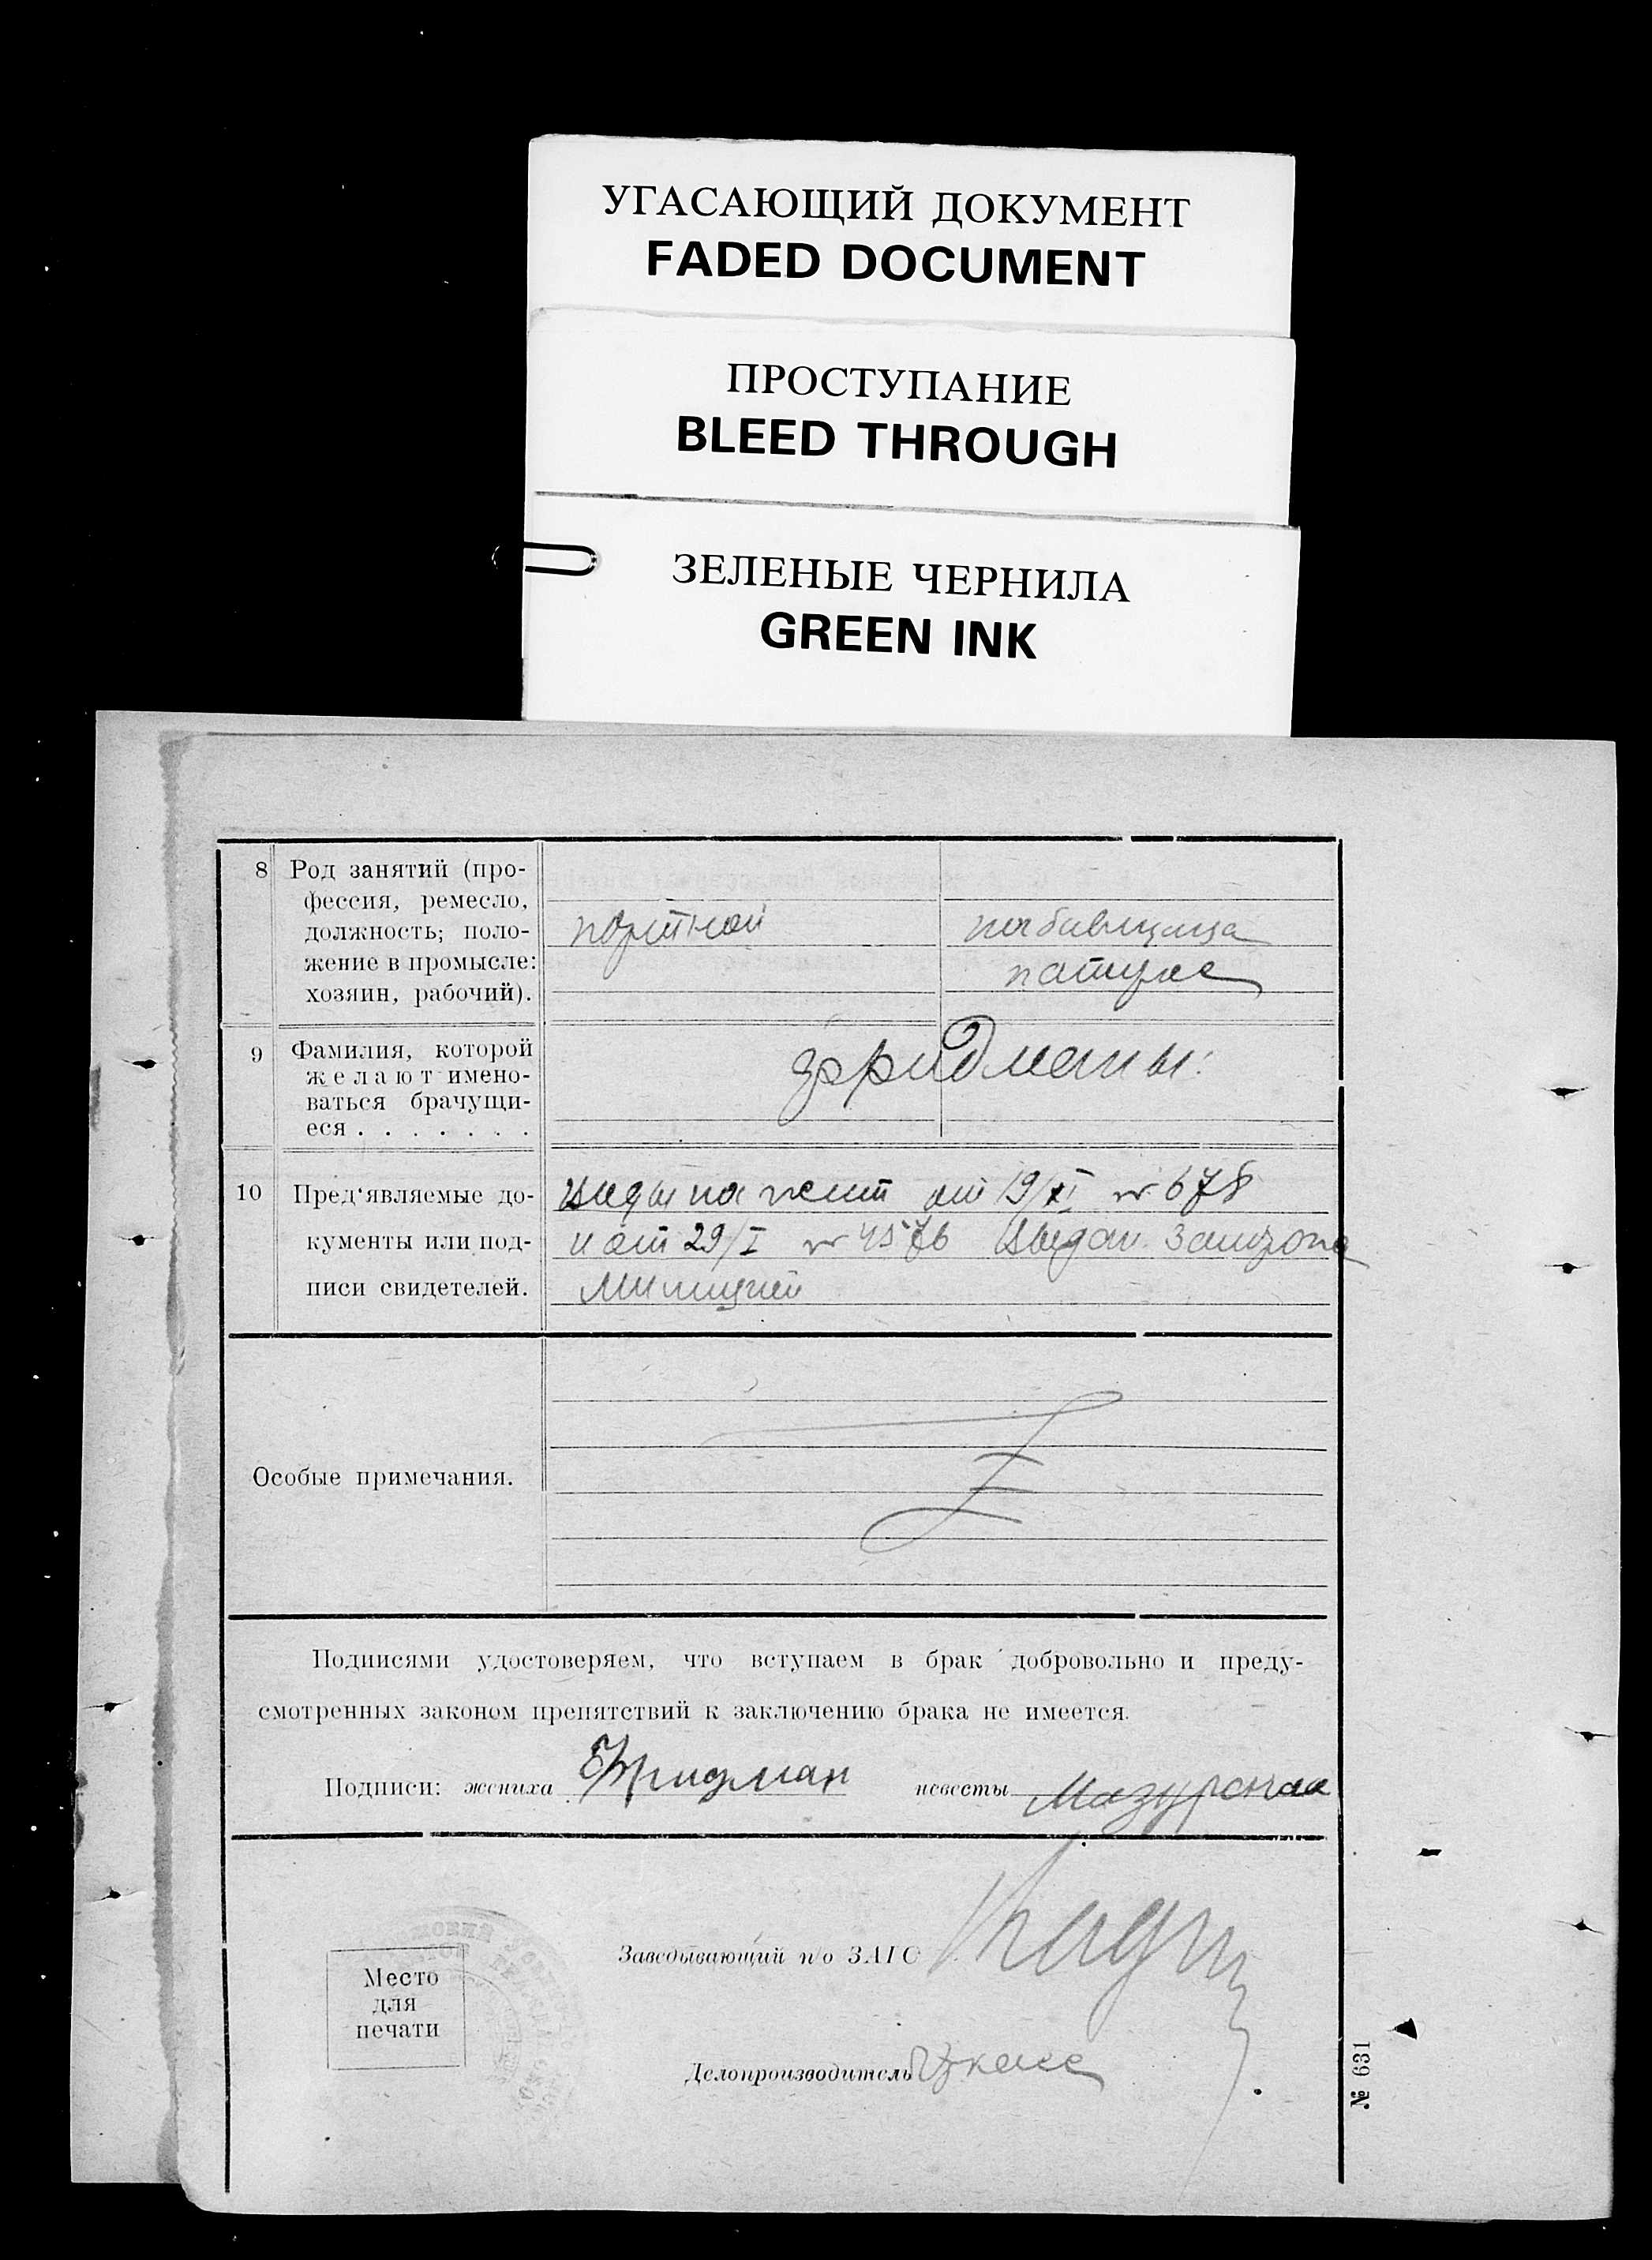 УГАСАЮЩИЙ ДОКУМЕНТ
FADED DOCUMENT
ПРОСТУПАНИЕ
BLEED THROUGH
ЗЕЛЕНЫЕ ЧЕРНИЛА
GREEN INK
8 Род занятий (про-
фессия, ремесло,
должность; поло-
жение в промысле:
хозяин, рабочий).
портной
набивщица
9 Фамилия, которой
желают имено-
ваться брачущи-
еся . . . . . . .
Фридманы.
10 Пред'являемые до-
кументы или под-
писи свидетелей.
Виды на жит от 19/XI № 678
и от 29/I № 4576 Выдан
Милицией
Особые примечания.
Подписями удостоверяем, что вступаем в брак добровольно и преду-
смотренных законом препятствий к заключению брака не имеется.
Подписи: жениха Фридман невесты Мазурская
Заведывающий п/о ЗАГС
Место
для
печати
Делопроизводитель
№ 631